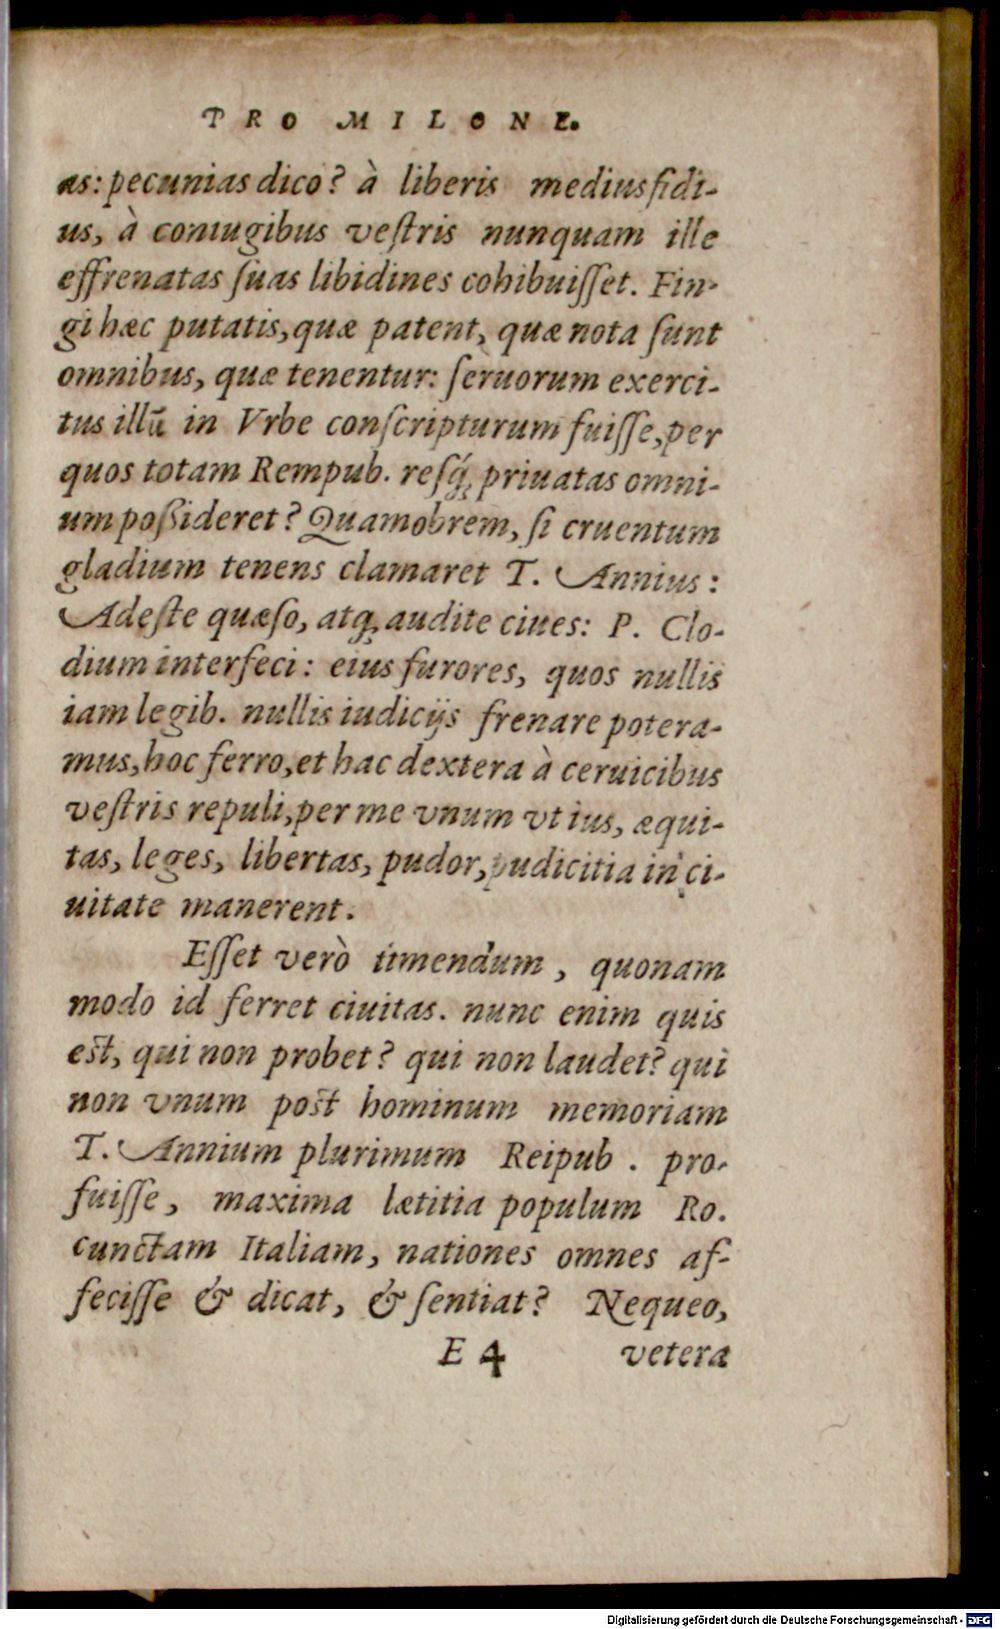 PRO MILONE.
as: pecunias dico? à liberis mediusfidi-
us, à coniugibus veſtris nunquam ille
effrenatas ſuas libidines cohibuiſſet. Fin-
gi hæc putatis, quæ patent, quæ nota ſunt
omnibus, quæ tenentur: ſeruorum exerci-
tus illũ in Vrbe conſcripturum fuiſſe, per
quos totam Rempub. reſq́; priuatas omni-
um poßideret? Quamobrem, ſi cruentum
gladium tenens clamaret T. Annius:
Adeſte quæſo, atq; audite ciues: P. Clo-
dium interfeci: eius furores, quos nullis
iam legib. nullis iudicijs frenare potera-
mus, hoc ferro, et hac dextera à ceruicibus
veſtris repuli, per me vnum vt ius, æqui-
tas, leges, libertas, pudor, pudicitia in ci-
uitate manerent.
Eſſet verò timendum, quonam
modo id ferret ciuitas. nunc enim quis
eſt, qui non probet? qui non laudet? qui
non vnum poſt hominum memoriam
T. Annium plurimum Reipub. pro-
fuiſſe, maxima lætitia populum Ro.
cunctam Italiam, nationes omnes af-
feciſſe & dicat, & ſentiat? Nequeo,
E 4 vetera
Digitalisierung gefördert durch die Deutsche Forschungsgemeinschaft - DFG